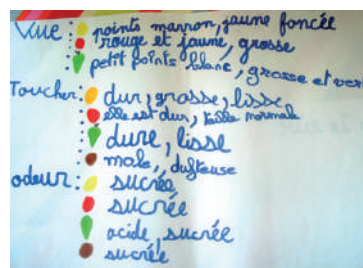 Vue : points marron, jaune foncée
rouge et jaune, grosse
petit points blanc, grosse et ver
Toucher : dur, grosse, lisse
elle est dur, taille normale
dure, lisse
male, dufteuse
odeur : sucrée
sucrée
acide, sucrée
sucrée